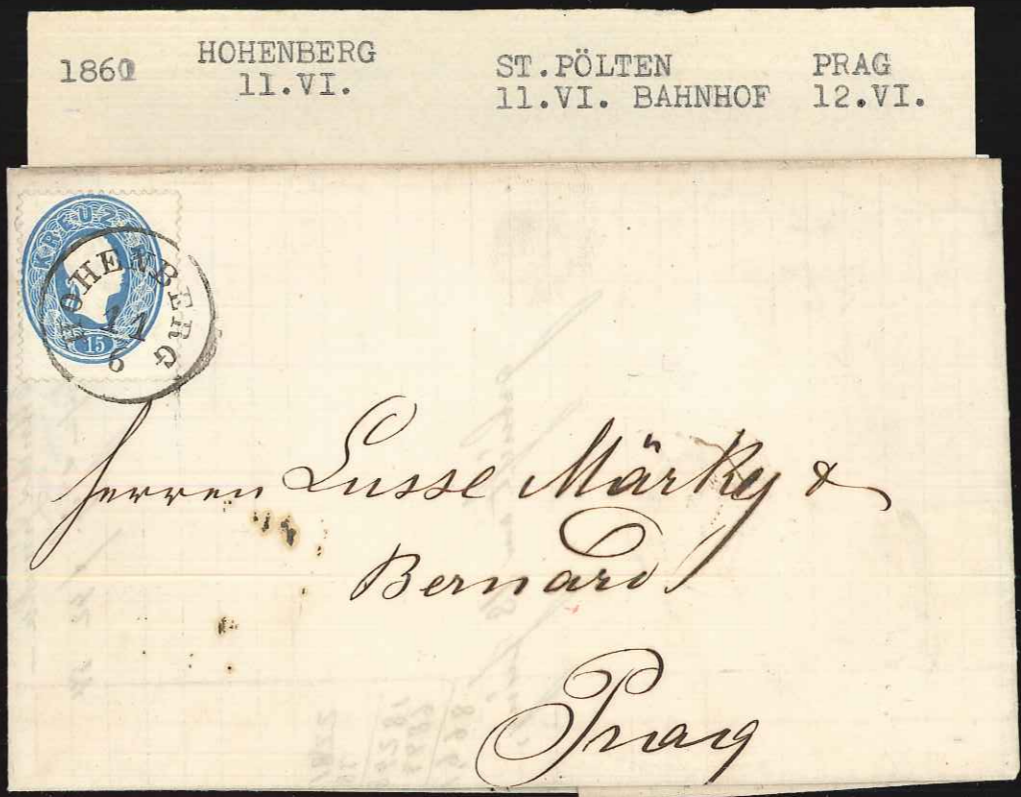 1860 HOHENBERG ST. PÖLTEN PRAG
11.VI. 11.VI. BAHNHOF 12.VI.
KREUZER
15
HOHENBERG
11
6
Herren Lusse Märky &
Bernard
Prag